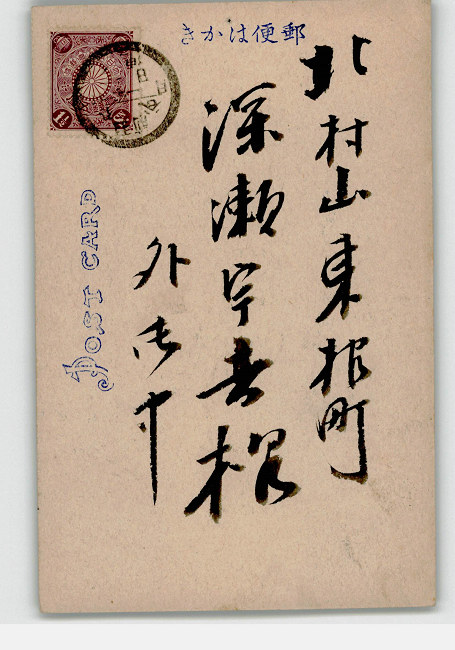 郵便はかき
北村山東根町
深瀬宇吉様
外御中
POST CARD
1½